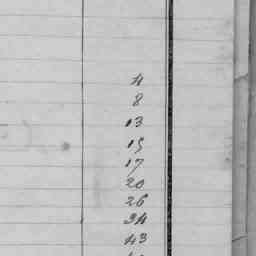 4
8
13
15
17
20
26
34
43